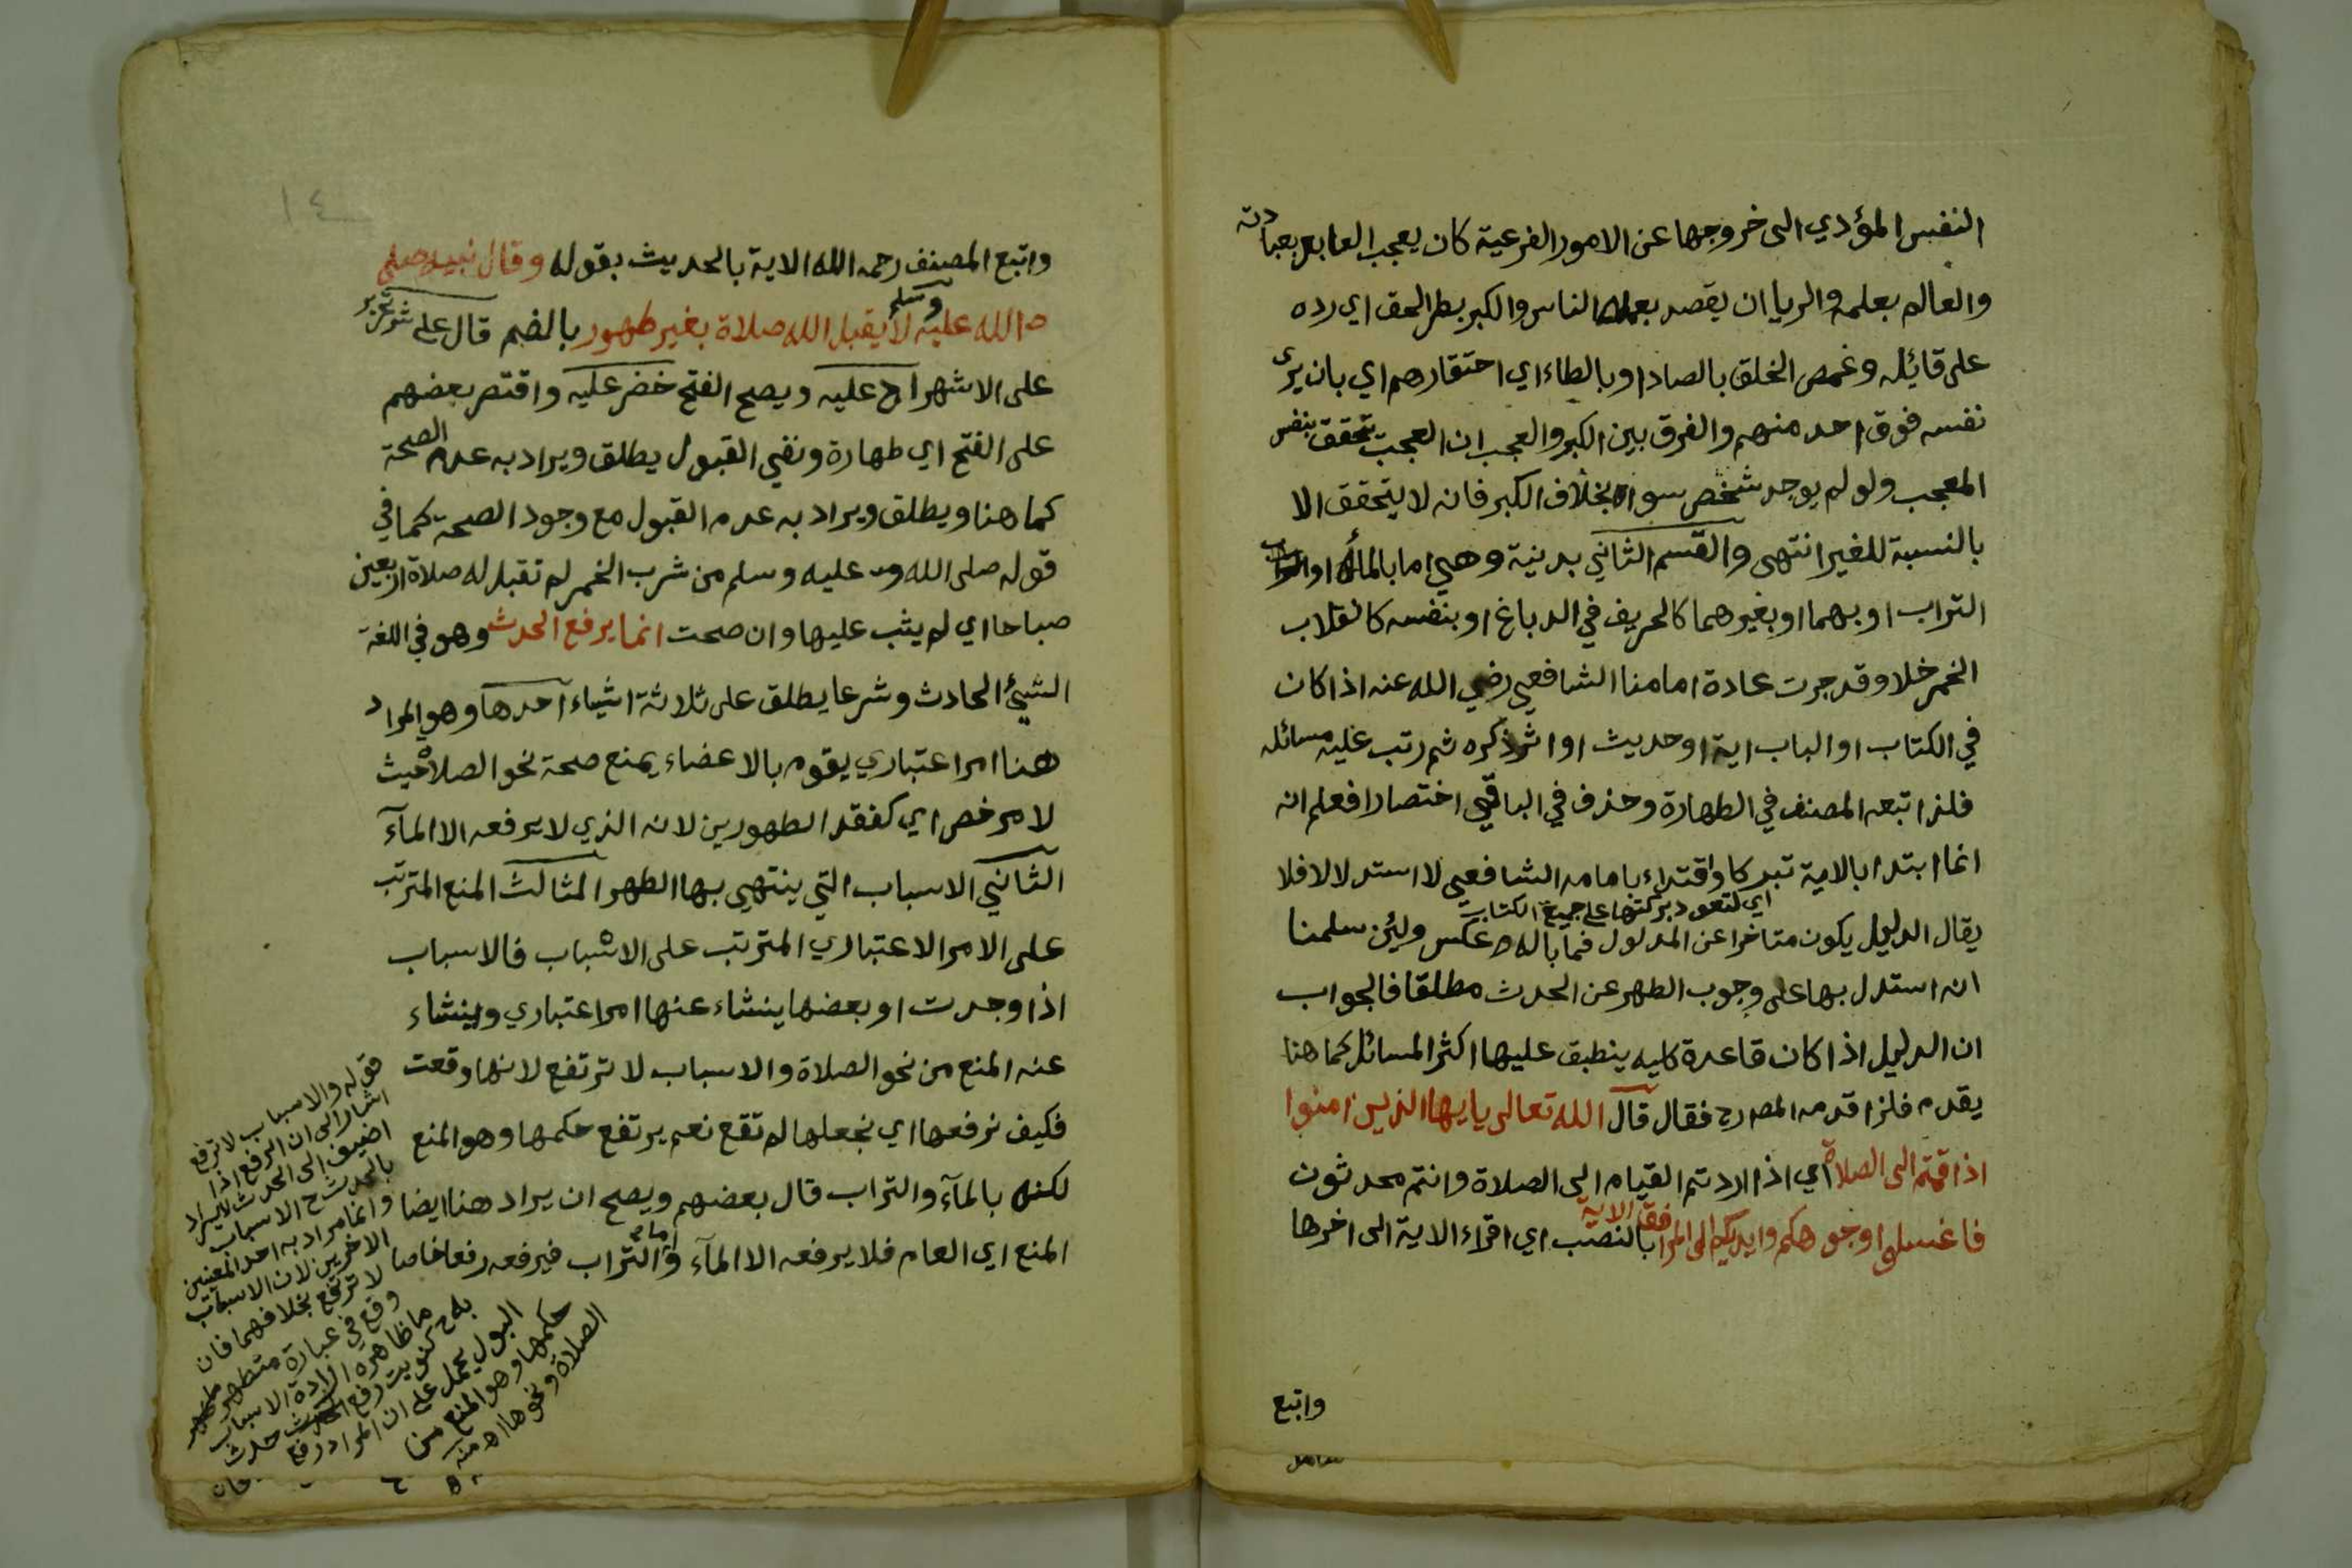 النفس المؤدي الى خروجها عن الامور الفرعية كان يعجب العابد بعبادته
والعالم بعلمه والريا ان يقصد بعمله الناس والكبر بطر الحق اي رده
على قائله وغمص الخلق بالصاد او بالطاء اي احتقارهم اي بان يرى
نفسه فوق احد منهم والفرق بين الكبر والعجب ان العجب يتحقق بنفس
المعجب ولو لم يوجد شخص سواه بخلاف الكبر فانه لا يتحقق الا
بالنسبة للغير انتهى والقسم الثاني بدنية وهي اما بالمأ او
التراب او بهما او بغيرهما كالحريف في الدباغ او بنفسه كانقلاب
الخمر خلا وقد جرت عادة امامنا الشافعي رضي الله عنه اذا كان
في الكتاب او الباب اية او حديث او اثر ذكره ثم رتب عليه مسائله
فلذا تبعه المصنف في الطهارة وحذف في الباقي اختصارا فعلم انه
انما ابتدا بالاية تبركا واقتداء بامامه الشافعي لا استدلالا فلا
اي لتعود بركتها على جميع الكتاب
يقال الدليل يكون متاخرا عن المدلول فما باله عكس ولئن سلمنا
انه استدل بها على وجوب الطهر عن الحدث مطلقا فالجواب
ان الدليل اذا كان قاعدة كليه ينطبق عليها اكثر المسائل كما هنا
يقدم فلذا قدمه المص رح فقال قال الله تعالى يايها الذين امنوا
اذا قمتم الى الصلاة اي اذا اردتم القيام الى الصلاة وانتم محدثون
فاغسلوا وجوهكم وايديكم الى المرافق الاية بالنصب اي اقراء الاية الى اخرها
واتبع
١٤
واتبع المصنف رحمه الله الاية بالحديث بقوله وقال نبيه صلى
الله عليه وسلم لا يقبل الله صلاة بغير طهور بالضم قال ع ش تحرير
على الاشهر اج عليه ويصح الفتح خضر عليه واقتصر بعضهم
على الفتح اي طهارة ونفي القبول يطلق ويراد به عدم الصحة
كما هنا ويطلق ويراد به عدم القبول مع وجود الصحة كما في
قوله صلى الله عليه وسلم من شرب الخمر لم تقبل له صلاة اربعين
صباحا اي لم يثب عليها وان صحت انما يرفع الحدث وهو في اللغة
الشيئ الحادث وشرعا يطلق على ثلاثة اشياء احدها وهو المراد
هنا امر اعتباري يقوم بالاعضاء يمنع صحة نحو الصلاة حيث
لا مرخص اي كفقد الطهورين لانه الذي لا يرفعه الا المآء
الثاني الاسباب التي ينتهي بها الطهر الثالث المنع المترتب
على الامر الاعتباري المترتب على الاسباب فالاسباب
اذا وجدت او بعضها ينشاء عنها امر اعتباري وينشاء
عنه المنع من نحو الصلاة والاسباب لا ترتفع لانها وقعت
فكيف نرفعها اي نجعلها لم تقع نعم يرتفع حكمها وهو المنع
لكنه بالمآء والتراب قال بعضهم ويصح ان يراد هنا ايضا
المنع اي العام فلا يرفعه الا المآء واما التراب فيرفعه رفعا خاصا
قوله والاسباب لا ترفع
اشار الى ان الرفع اذا
اضيف الى الحدث لا يراد
بالحدث ح الاسباب
وانما مراد به احد المعنيين
الاخرين لان الاسباب
لا ترتفع بخلافهما فان
وقع في عبارة متطهر
ما ظاهره ارادة الاسباب
به ح كنويت رفع الحدث حدث
البول يحمل على ان المراد رفع
حكمها وهو المنع من
الصلاة ونحوها اه منه